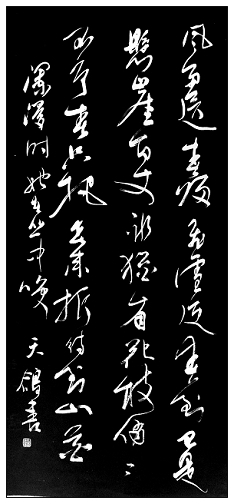 风雨送春归飞雪迎春到已是
懸崖百丈冰犹有花枝俏〻
不争春只把春来报待到山花
烂漫时她在丛中笑 天鸽